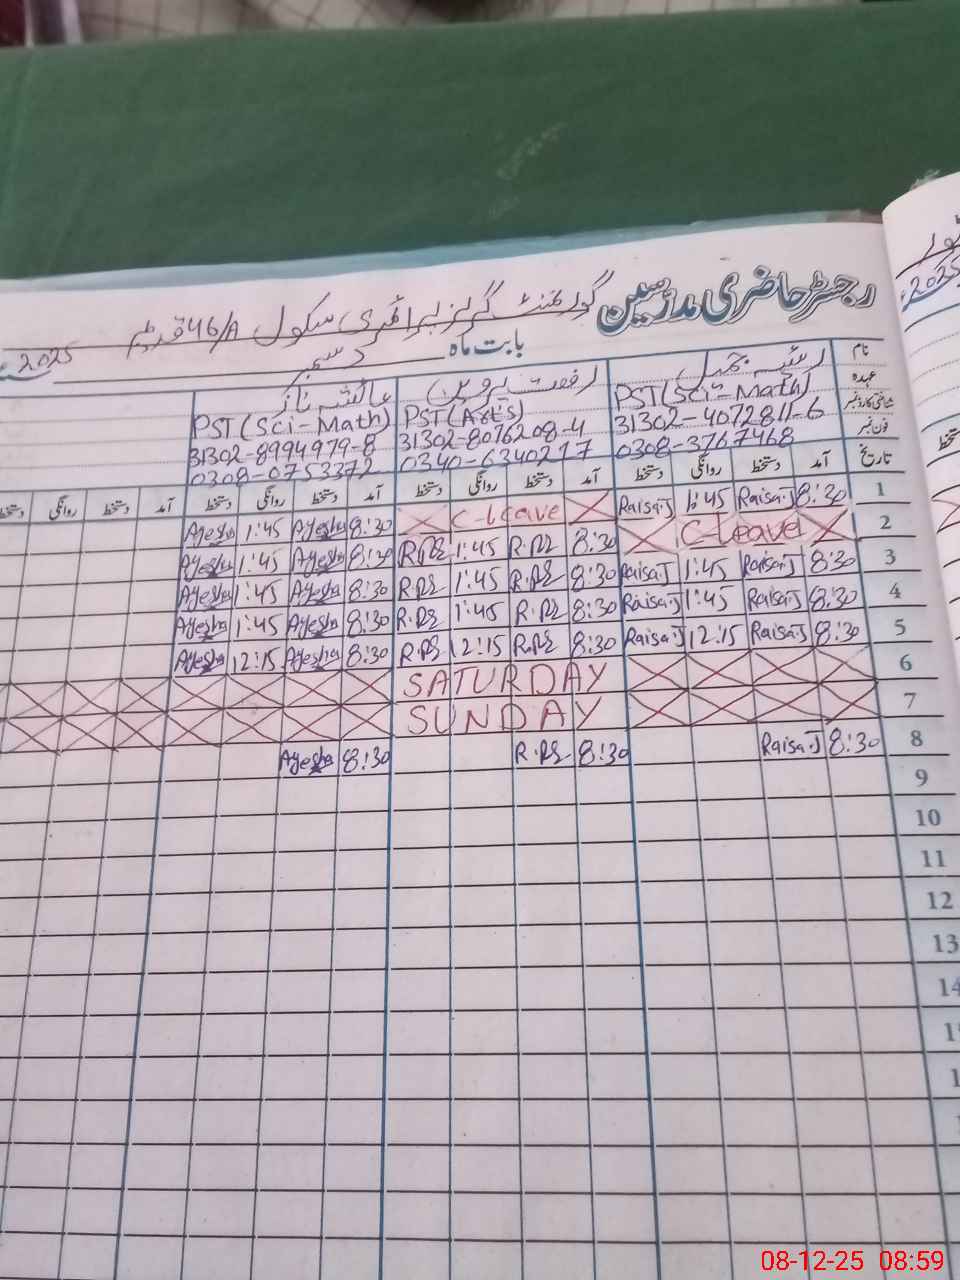 رجسٹر حاضری مدرسین گورنمنٹ گرلز پرائمری سکول 46/A قدیم
بابت ماہ دسمبر 2025
نام رئیسہ جمیل رفعت پروین عائشہ ناز
عہدہ PST(Sci-Math) PST(Arts) PST(Sci-Math)
شناختی کارڈ نمبر 31302-4072811-6 31302-8076208-4 31302-8994979-8
فون نمبر 0308-3767468 0340-6340217 0308-0753372
تاریخ آمد دستخط روانگی دستخط آمد دستخط روانگی دستخط آمد دستخط روانگی دستخط آمد دستخط روانگی دستخط
1 8:30 Raisa.J 1:45 Raisa.J C-leave 8:30 Ayesha 1:45 Ayesha
2 C-Leave 8:30 R.PS 1:45 R.PS 8:30 Ayesha 1:45 Ayesha
3 8:30 Raisa.J 1:45 Raisa.J 8:30 R.PS 1:45 R.PS 8:30 Ayesha 1:45 Ayesha
4 8:30 Raisa.J 1:45 Raisa.J 8:30 R.PS 1:45 R.PS 8:30 Ayesha 1:45 Ayesha
5 8:30 Raisa.J 12:15 Raisa.J 8:30 R.PS 12:15 R.PS 8:30 Ayesha 12:15 Ayesha
6 SATURDAY
7 SUNDAY
8 8:30 Raisa.J 8:30 R.PS 8:30 Ayesha
9
10
11
12
13
14
2025
08-12-25 08:59